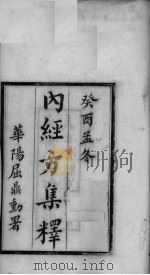 癸酉孟冬
內經方集釋
華陽屈鼎勳署